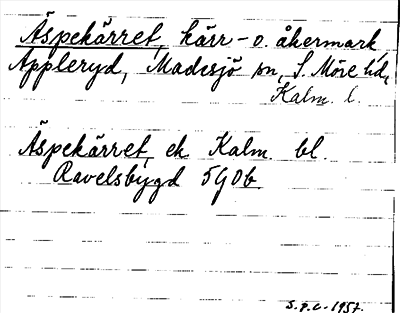 Äspekärret, kärr- o. åkermark
Appleryd, Madesjö sn, S. Möre hd,
Kalm. l.
Äspekärret, ek Kalm. bl.
Ravelsbygd 5G0b.
S.P.C. 1957.